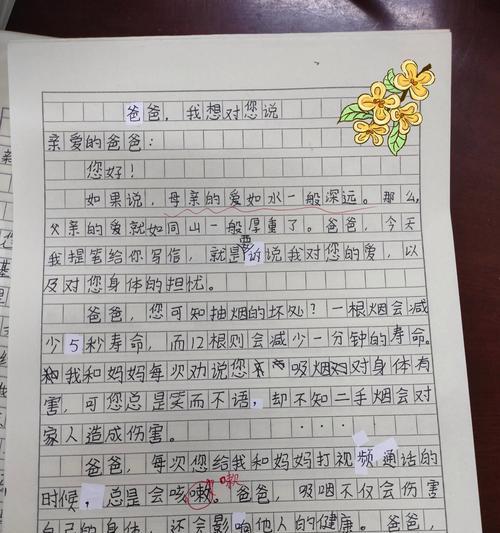 爸爸，我想对您说
亲爱的爸爸：
您好！
如果说，母亲的爱如水一般深远。那么，
父亲的爱就如同山一般厚重了。爸爸，今天
我提笔给你写信，就是要诉说我对您的爱，以
及对您身体的担忧。
爸爸，您可知抽烟的坏处？一根烟会减
少5秒寿命，而12根则会减少一分钟的寿命。
我和妈妈每次劝说您吸烟对身体有
害，可您总是笑而不语，却不知二手烟会对
家人造成伤害。
爸爸，每次您给我和妈妈打视频通话的
时候，总是会咳嗽。嗽爸爸，吸烟不仅会伤害
自己的身体，还会影响他人的健康。爸爸，